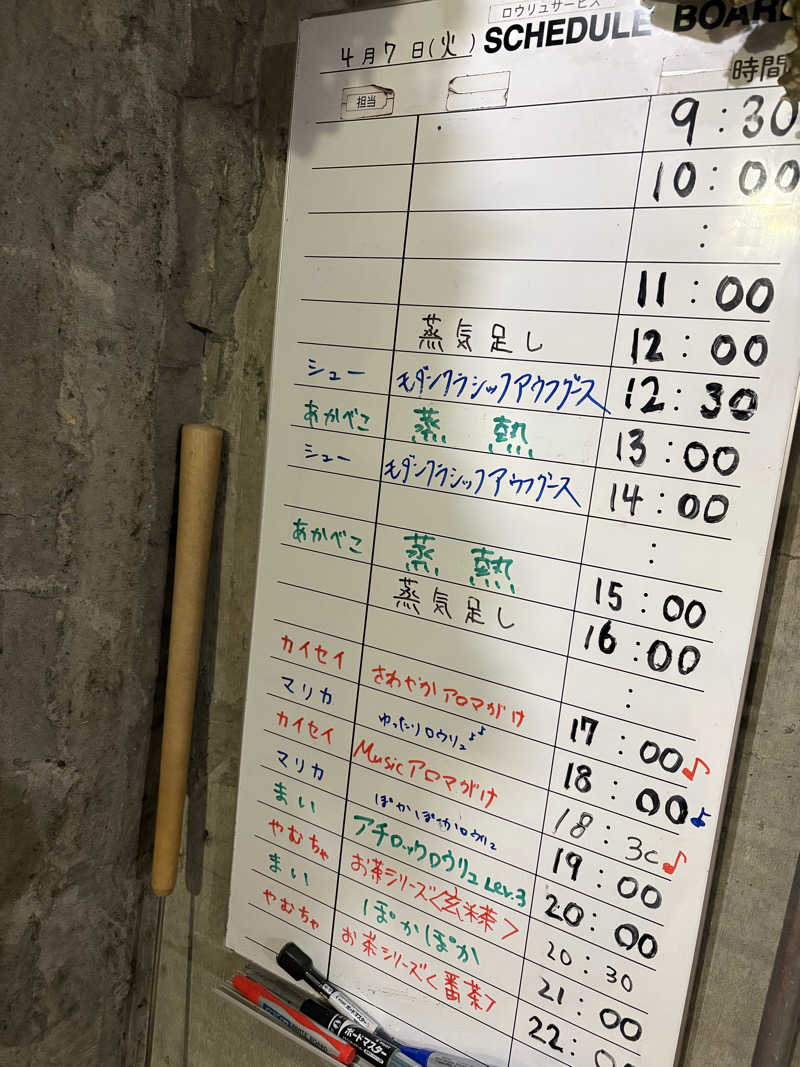 ロウリュサービス
4月7日(火) SCHEDULE BOARD
担当 時間
9:30
10:00
:
11:00
蒸気足し 12:00
シュー モダンクラシックアウフグース 12:30
あかべこ 蒸熱 13:00
シュー モダンクラシックアウフグース 14:00
:
あかべこ 蒸熱 15:00
蒸気足し 16:00
:
カイセイ さわやかアロマがけ 17:00♪
マリカ ゆったりロウリュ♪♪ 18:00♪
カイセイ Musicアロマがけ 18:30♪
マリカ ぽかぽかロウリュ 19:00
まい アチロックロウリュ Lev.3 20:00
やむちゃ お茶シリーズ<玄米茶> 20:30
まい ぽかぽか 21:00
やむちゃ お茶シリーズ<番茶> 22:00
ボードマスター